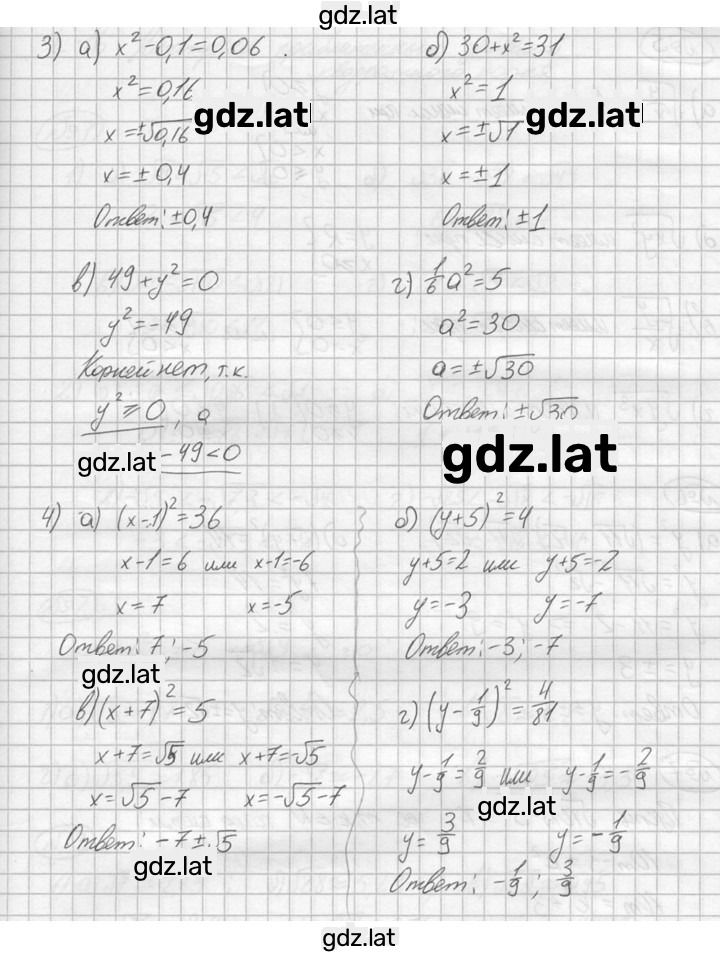 gdz.lat
3) а) x²-0,1=0,06
x²=0,16
x=±√0,16
x=±0,4
Ответ: ±0,4
б) 30+x²=31
x²=1
x=±√1
x=±1
Ответ: ±1
gdz.lat
gdz.lat
в) 49+y²=0
y²=-49
Корней нет, т.к.
y²⩾0, а
-49<0
gdz.lat
г) 1/6 a²=5
a²=30
a=±√30
Ответ: ±√30
gdz.lat
4) а) (x-1)²=36
x-1=6 или x-1=-6
x=7 x=-5
Ответ: 7; -5
gdz.lat
б) (y+5)²=4
y+5=2 или y+5=-2
y=-3 y=-7
Ответ: -3; -7
в) (x+7)²=5
x+7=√5 или x+7=-√5
x=√5-7 x=-√5-7
Ответ: -7±√5
gdz.lat
г) (y-1/9)²=4/81
y-1/9=2/9 или y-1/9=-2/9
gdz.lat
y=3/9 y=-1/9
Ответ: -1/9; 3/9
gdz.lat